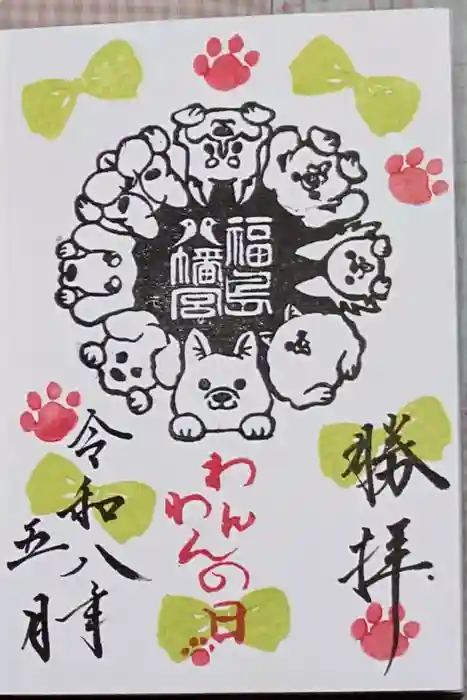 勝拝
福島
八幡宮
わんわんの日
令和八年
五月